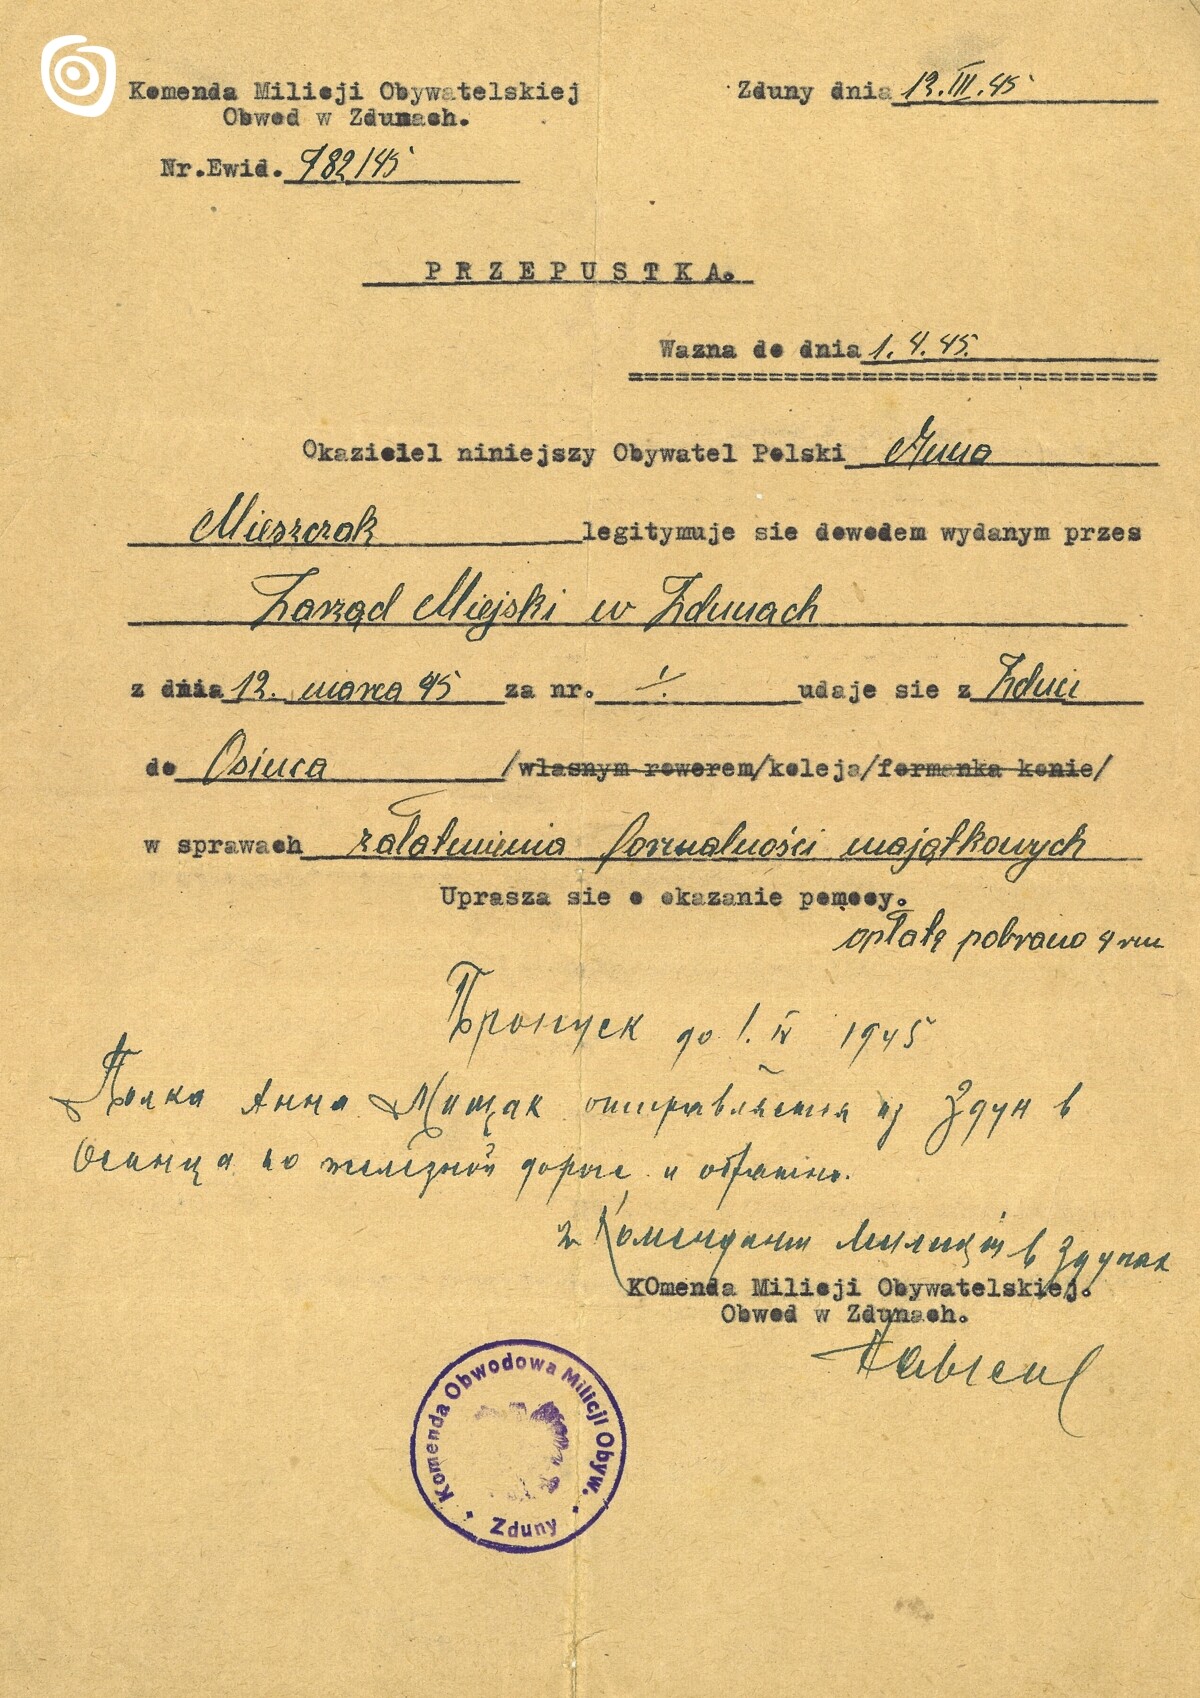 Komenda Milicji Obywatelskiej
Obwod w Zdunach.
Zduny dnia 12.III.45
Nr.Ewid. 782/45
PRZEPUSTKA.
Wazna do dnia 1.4.45.
==================================
Okaziciel niniejszy Obywatel Polski Anna
Mieszczak legitymuje sie dowodem wydanym przes
Zarząd Miejski w Zdunach
z dnia 12. marca 45 za nr. -/- udaje sie z Zdun
do Osieca /wlasnym rowerem/koleja/formanka konie/
w sprawach załatwienia formalności majątkowych
Uprasza sie o okazanie pomocy.
opłatę pobrano 4 rm
Пропуск до 1. IV 1945
Полка Анна Мищак отправляется из Здун в
по железной дороге и обратно.
Комендант Милиций в Здунах
KOmenda Milicji Obywatelskiej.
Obwod w Zdunach.
Komenda Obwodowa Milicji Obyw.
Zduny